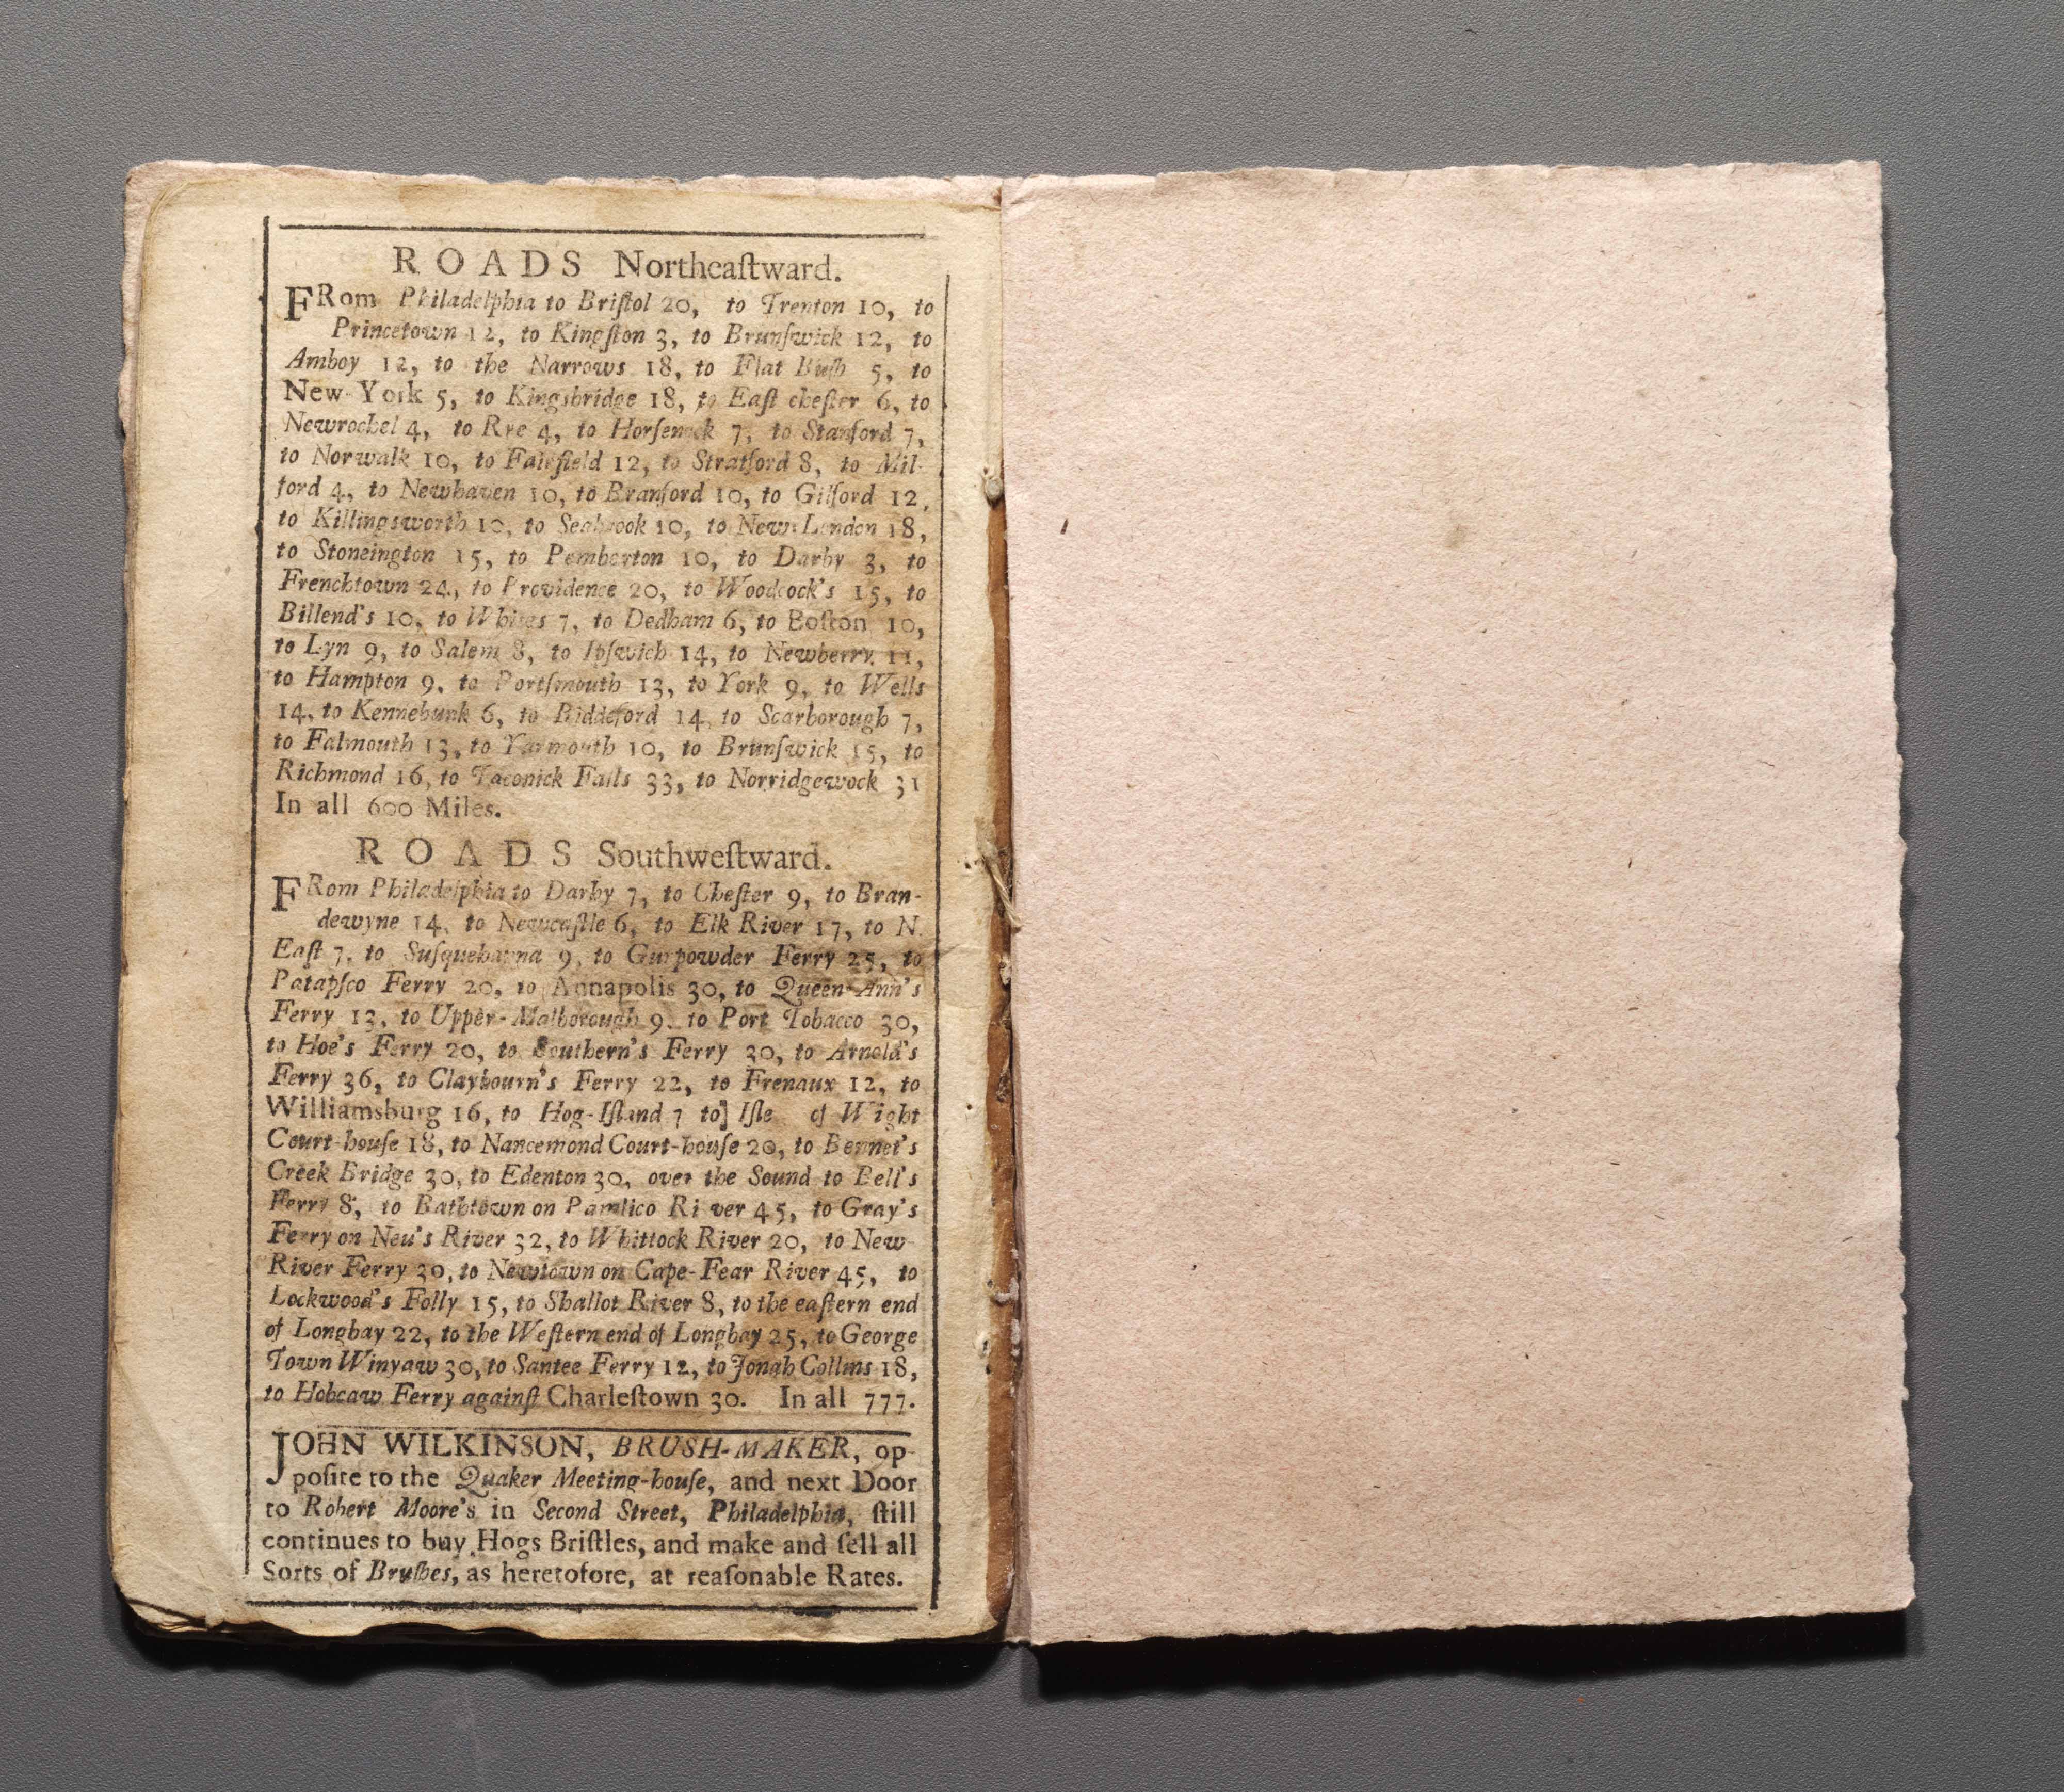 ROADS Northeaſtward.
FRom Philadelphia to Briſtol 20, to Trenton 10, to
Princetown 12, to Kingſton 3, to Brunſwick 12, to
Amboy 12, to the Narrows 18, to Flat Buſh 5, to
New-York 5, to Kingsbridge 18, to Eaſt cheſter 6, to
Newrochel 4, to Rye 4, to Horſeneck 7, to Stanford 7,
to Norwalk 10, to Fairfield 12, to Stratford 8, to Mil-
ford 4, to Newhaven 10, to Branford 10, to Gilford 12,
to Killingsworth 10, to Seabrook 10, to New-London 18,
to Stoneington 15, to Pemberton 10, to Darby 3, to
Frenchtown 24, to Providence 20, to Woodcock's 15, to
Billend's 10, to Whites 7, to Dedham 6, to Boſton 10,
to Lyn 9, to Salem 8, to Ipſwich 14, to Newberry 11,
to Hampton 9, to Portſmouth 13, to York 9, to Wells
14, to Kennebunk 6, to Biddeford 14, to Scarborough 7,
to Falmouth 13, to Yarmouth 10, to Brunſwick 15, to
Richmond 16, to Taconick Falls 33, to Norridgewock 31
In all 600 Miles.
ROADS Southweſtward.
FRom Philadelphia to Darby 7, to Cheſter 9, to Bran-
dewyne 14, to Newcaſtle 6, to Elk River 17, to N.
Eaſt 7, to Suſquehanna 9, to Gunpowder Ferry 25, to
Patapſco Ferry 20, to Annapolis 30, to Queen-Ann's
Ferry 13, to Upper-Malborough 9, to Port Tobacco 30,
to Hoe's Ferry 20, to Southern's Ferry 30, to Arnold's
Ferry 36, to Claybourn's Ferry 22, to Frenaux 12, to
Williamsburg 16, to Hog-Iſland 7 to] Iſle of Wight
Court-houſe 18, to Nancemond Court-houſe 20, to Bennet's
Creek Bridge 30, to Edenton 30, over the Sound to Bell's
Ferry 8, to Bathtown on Pamlico Ri ver 45, to Gray's
Ferry on Neu's River 32, to Whittock River 20, to New-
River Ferry 30, to Newtown on Cape-Fear River 45, to
Lockwood's Folly 15, to Shallot River 8, to the eaſtern end
of Longbay 22, to the Weſtern end of Longbay 25, to George
Town Winyaw 30, to Santee Ferry 12, to Jonah Collins 18,
to Hobcaw Ferry againſt Charleſtown 30. In all 777.
JOHN WILKINSON, BRUSH-MAKER, op-
poſite to the Quaker Meeting-houſe, and next Door
to Robert Moore's in Second Street, Philadelphia, ſtill
continues to buy Hogs Briſtles, and make and ſell all
Sorts of Bruſhes, as heretofore, at reaſonable Rates.